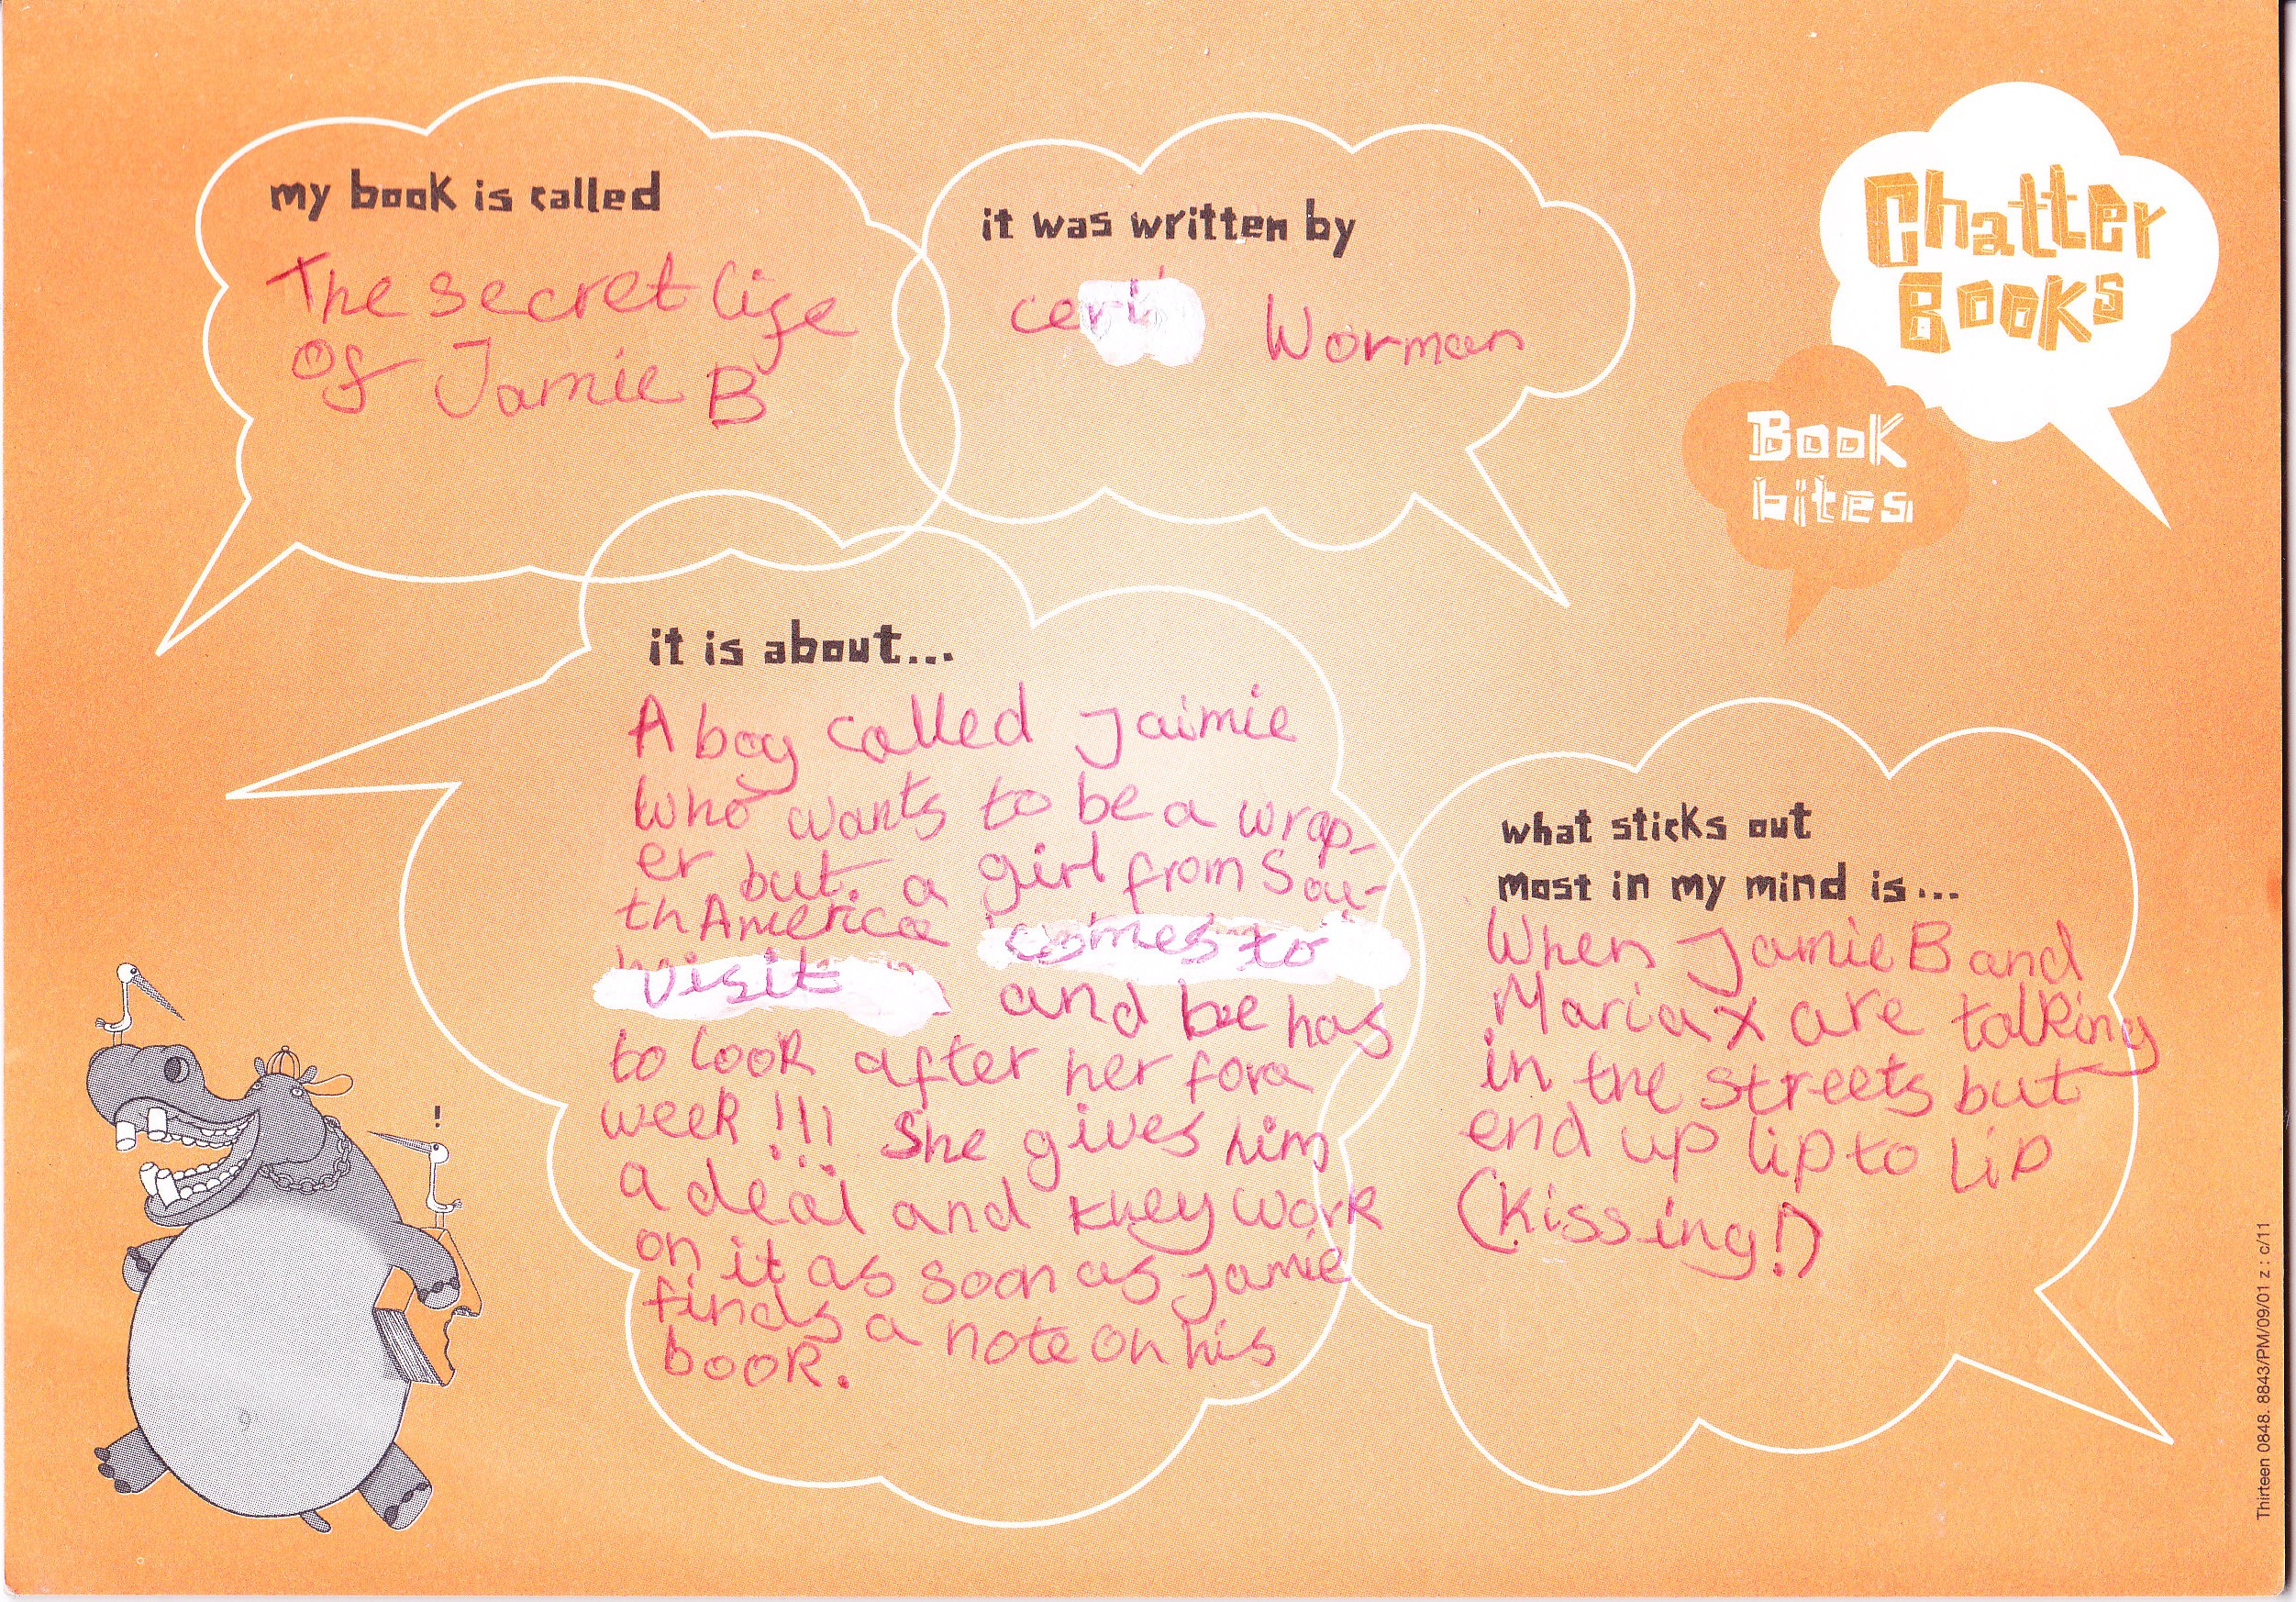 my book is called
The secret life
of Jamie B
it was written by
ceri Worman
Chatter
Books
Book
bites
it is about...
A boy called Jaimie
who wants to be a wrap-
er but. a girl from Sou-
th America comes to
visit and he has
to look after her for a
week!!! She gives him
a deal and they work
on it as soon as Jamie
finds a note on his
book.
what sticks out
most in my mind is...
When Jamie B and
Maria x are talking
in the streets but
end up lip to lip
(Kissing!)
!
Thirteen 0848. 8843/PM/09/01 z : c/11